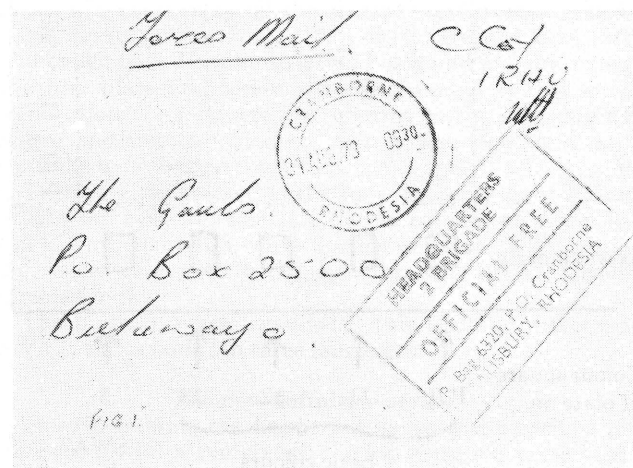 Forces Mail. C Coy
1RHU
CRANBORNE
31 AUG 73 0930
RHODESIA
The
P.O Box 2500
Bulawayo.
HEADQUARTERS
2 BRIGADE
OFFICIAL FREE
P. Bag 6320, P.O. Cranborne
SALISBURY, RHODESIA
FIG 1.